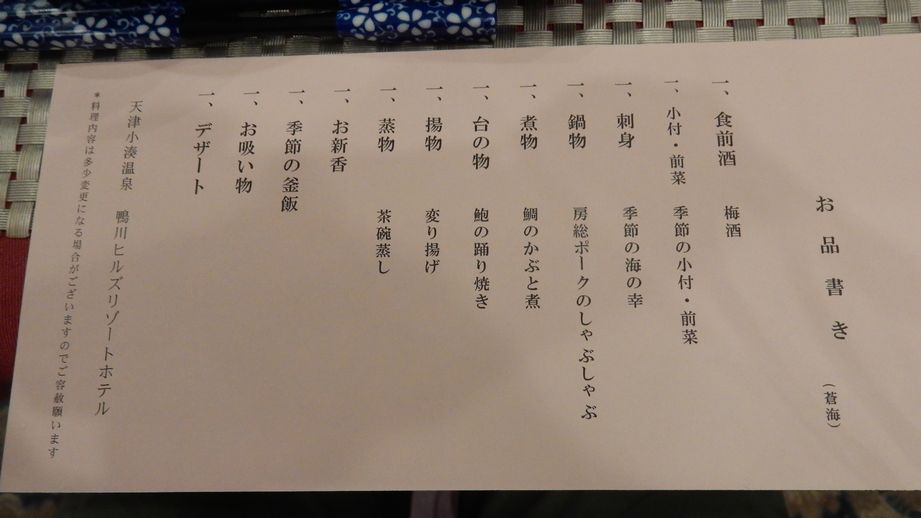 お品書き（蒼海）
一、食前酒　梅酒
一、小付・前菜　季節の小付・前菜
一、刺身　季節の海の幸
一、鍋物　房総ポークのしゃぶしゃぶ
一、煮物　鯛のかぶと煮
一、台の物　鮑の踊り焼き
一、揚物　変り揚げ
一、蒸物　茶碗蒸し
一、お新香
一、季節の釜飯
一、お吸い物
一、デザート
天津小湊温泉　鴨川ヒルズリゾートホテル
*料理内容は多少変更になる場合がございますのでご容赦願います